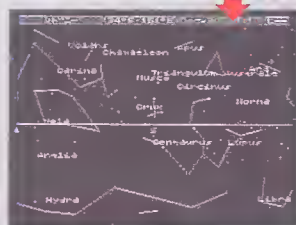 Volans
Chamaeleon
Apus
Carina
Musca
Triangulum Australe
Ara
Circinus
Crux
Norma
Vela
S
Centaurus
Lupus
Antlia
Hydra
Libra